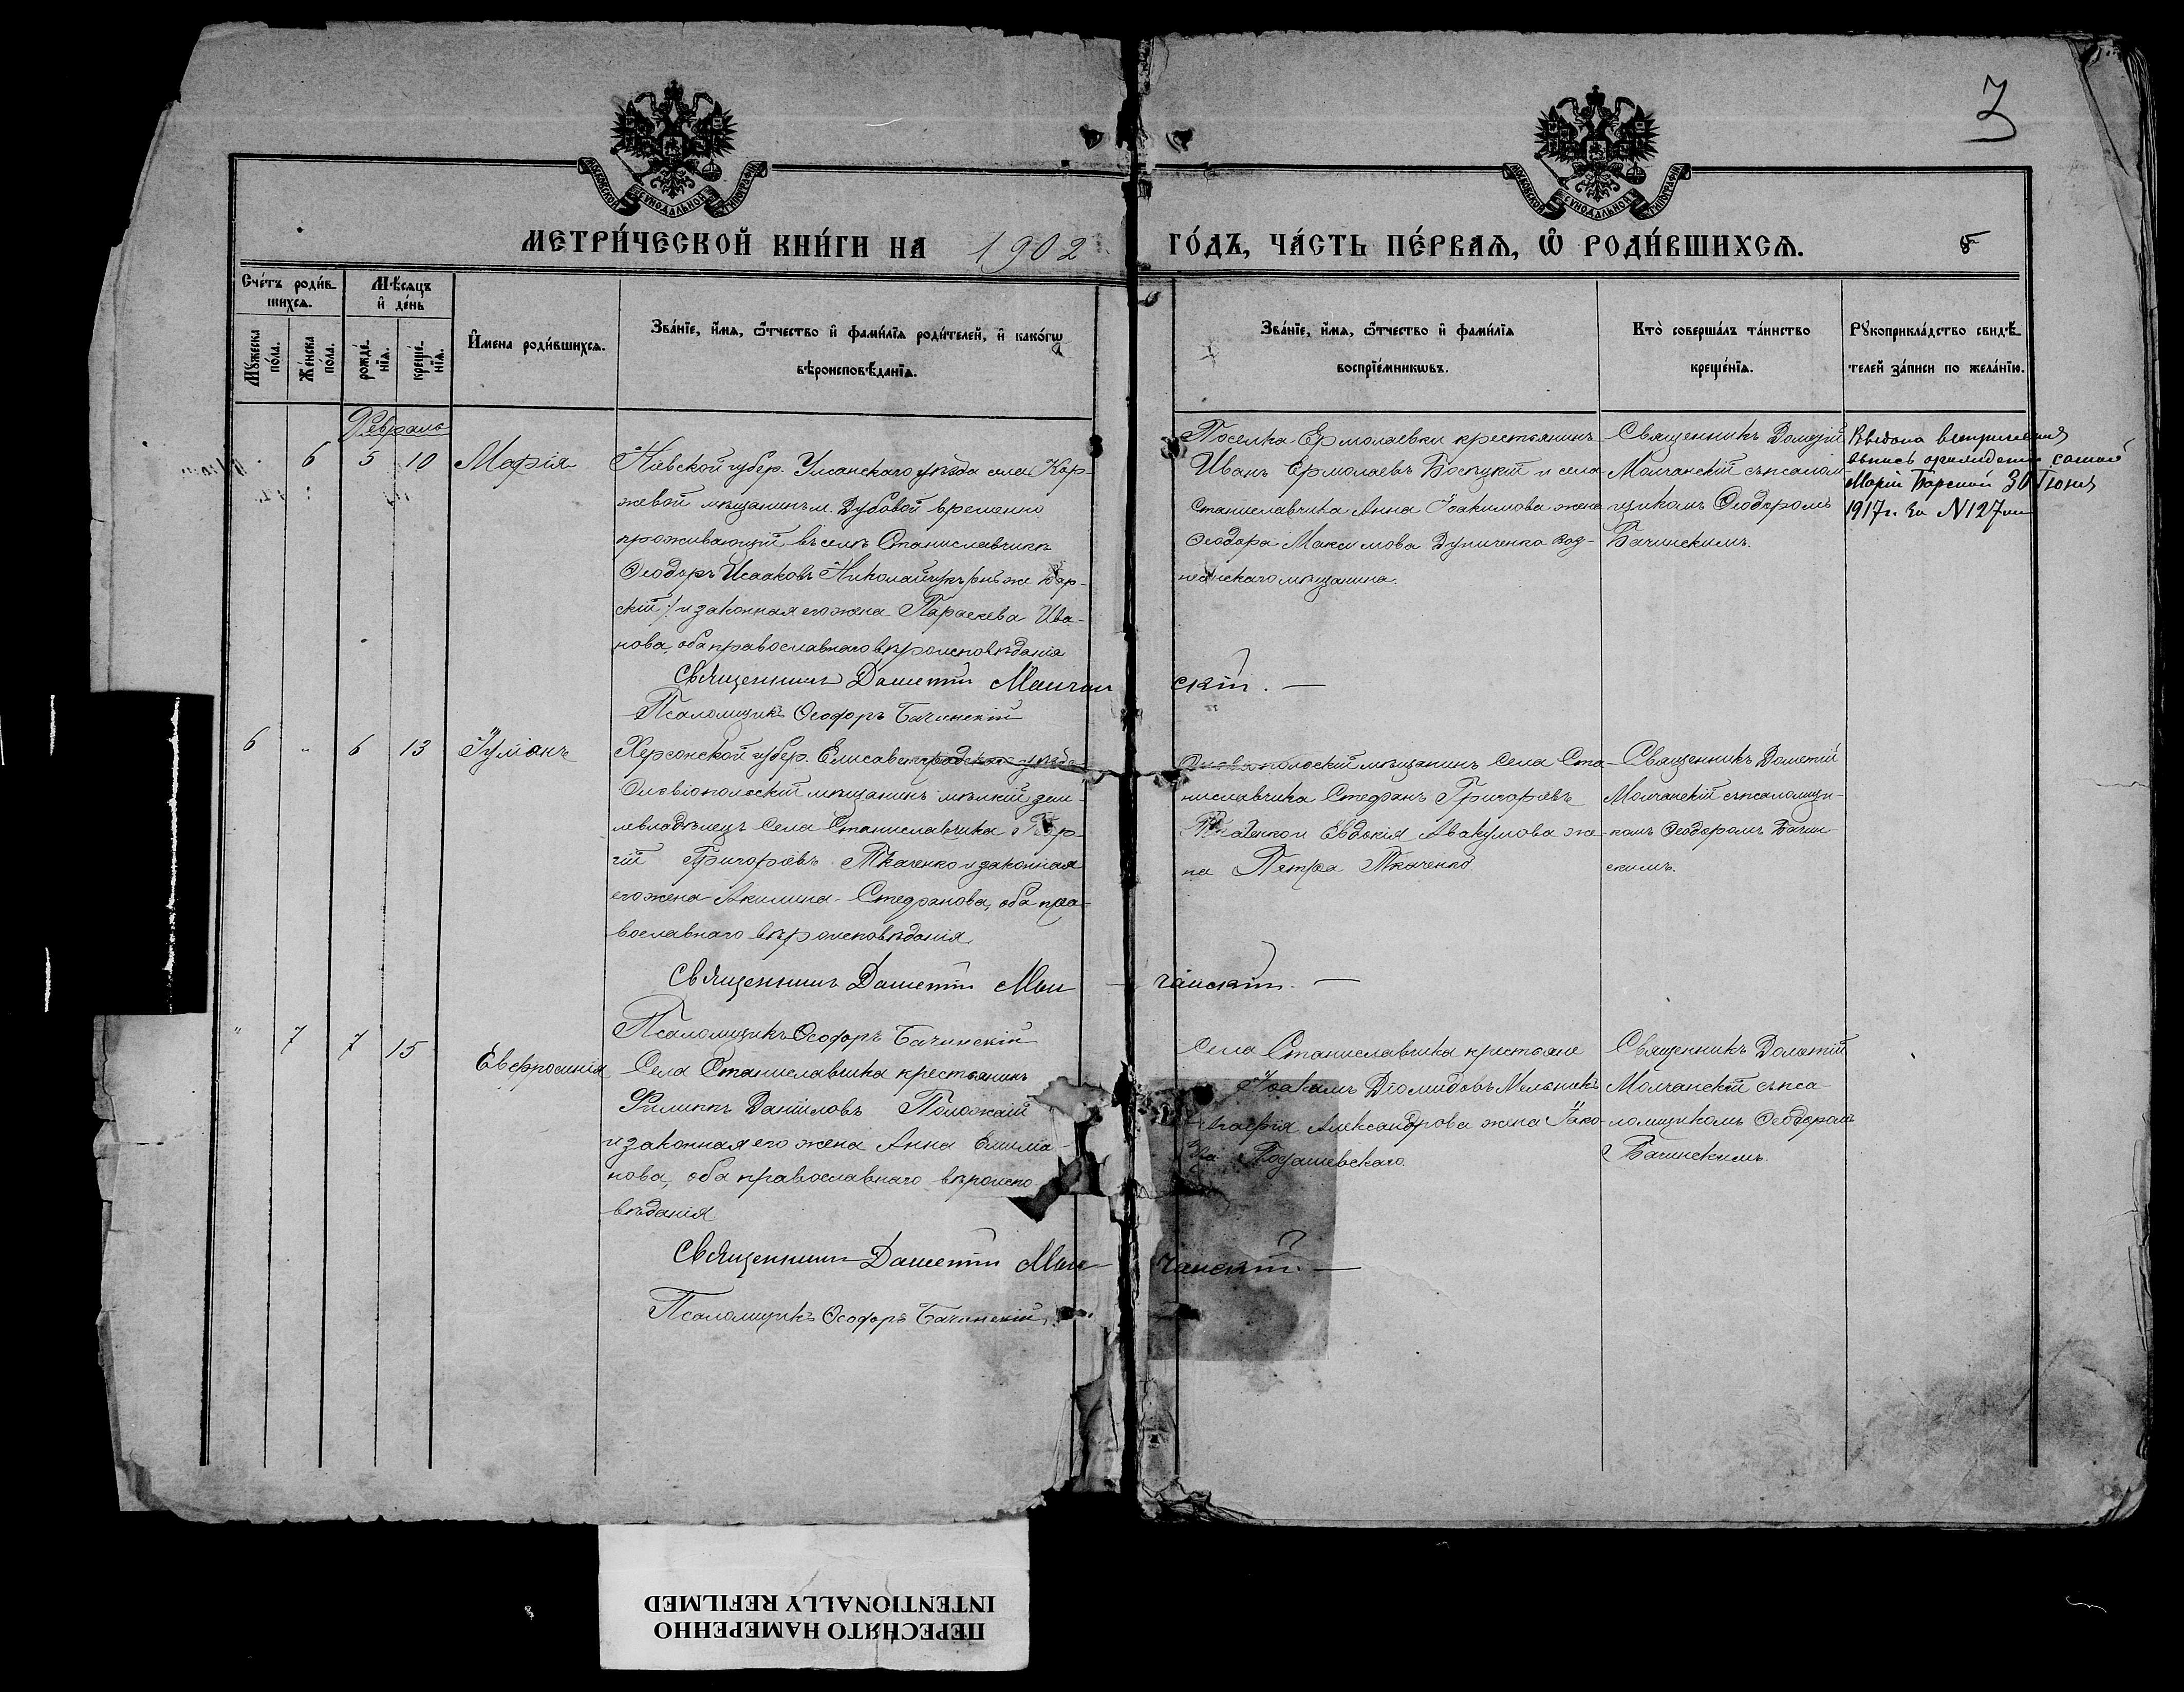 3
МОСКОВСКОЙ СѴНОДАЛЬНОЙ ТИПОГРАФІИ
МОСКОВСКОЙ СѴНОДАЛЬНОЙ ТИПОГРАФІИ
МЕТРИ́ЧЕСКОЙ КНИ́ГИ НА 1902 ГО́ДЪ, ЧА́СТЬ ПЕ́РВАѦ, Ѡ҆ РОДИ́ВШИХСѦ.
Сче́тъ роди́в-
шихсѧ.
Мꙋжеска по́ла.
Же́нска по́ла.
Мѣ́сѧцъ и҆ де́нь
рожде́-нїѧ.
креще́-нїѧ.
И҆мена роди́вшихсѧ.
Зва́нїе, и҆́мѧ, ѻ҆́тчество и҆ фами́лїѧ роди́телей, и҆ како́гѡ
вѣроисповѣ́данїѧ.
Зва́нїе, и҆́мѧ, ѻ҆́тчество и҆ фами́лїѧ
воспрїе́мникѡвъ.
Кто̀ соверша́лъ та́инство
креще́нїѧ.
Рꙋкоприкла́дство свидѣ́-
телей за́писи по жела́нїю.
Февраль
6 5 10 Марія
Кіевской губер. Уманскаго уѣзда села Кор-
жевой мѣщанинъ м. Дубовой временно
проживающій въ селѣ Станиславчикѣ
Ѳеодоръ Исааковъ Николайчукъ (онъ же Бор-
скій) и законная его жена Параскева Ива-
нова, оба православнаго вѣроисповѣданія
Священникъ Дометій Молчанскій. —
Псаломщикъ Ѳеодоръ Бачинскій
Поселка Ермолаевки крестьянинъ
Иванъ Ермолаевъ и села
Станиславчика Анна Іоакимова жена
Ѳеодора Максимова Дупиченка
мѣщанина.
Священникъ Дометій
Молчанскій съ псалом-
щикомъ Ѳеодоромъ
Бачинскимъ.
Выдана метрическая
выпись самой
Маріи Борской 30 Іюня
1917 г. за N 127
6 " 6 13 Іуліанъ
Херсонской губер. Елисаветградскаго уѣзда
Ольвіопольскій мѣщанинъ мѣлкій зем-
левладѣлецъ села Станиславчика
Григоріевъ Ткаченко и законная
его жена Акилина Стефанова, оба пра-
вославнаго вѣроисповѣданія
Священникъ Дометій Молчанскій. —
Псаломщикъ Ѳеодоръ Бачинскій
Ольвіопольскій мѣщанинъ села Ста-
ниславчика Стефанъ Григоріевъ
Ткаченко и Евдокія Авакумова же-
на Петра Ткаченко
Священникъ Дометій
Молчанскій съ псаломщи-
комъ Ѳеодоромъ Бачин-
скимъ.
" 7 7 15 Евфросинія
Села Станиславчика крестьянинъ
Филиппъ Даніиловъ
и законная его жена Анна
нова, оба православнаго вѣроиспо-
вѣданія
Священникъ Дометій Молчанскій. —
Псаломщикъ Ѳеодоръ Бачинскій.
Села Станиславчика крестьяне
Іоакимъ Діомидовъ Мельникъ
и Агафія Александрова жена Іако-
ва
Священникъ Дометій
Молчанскій съ пса-
ломщикомъ Ѳеодоромъ
Бачинскимъ.
ПЕРЕСНЯТО НАМЕРЕННО
INTENTIONALLY REFILMED